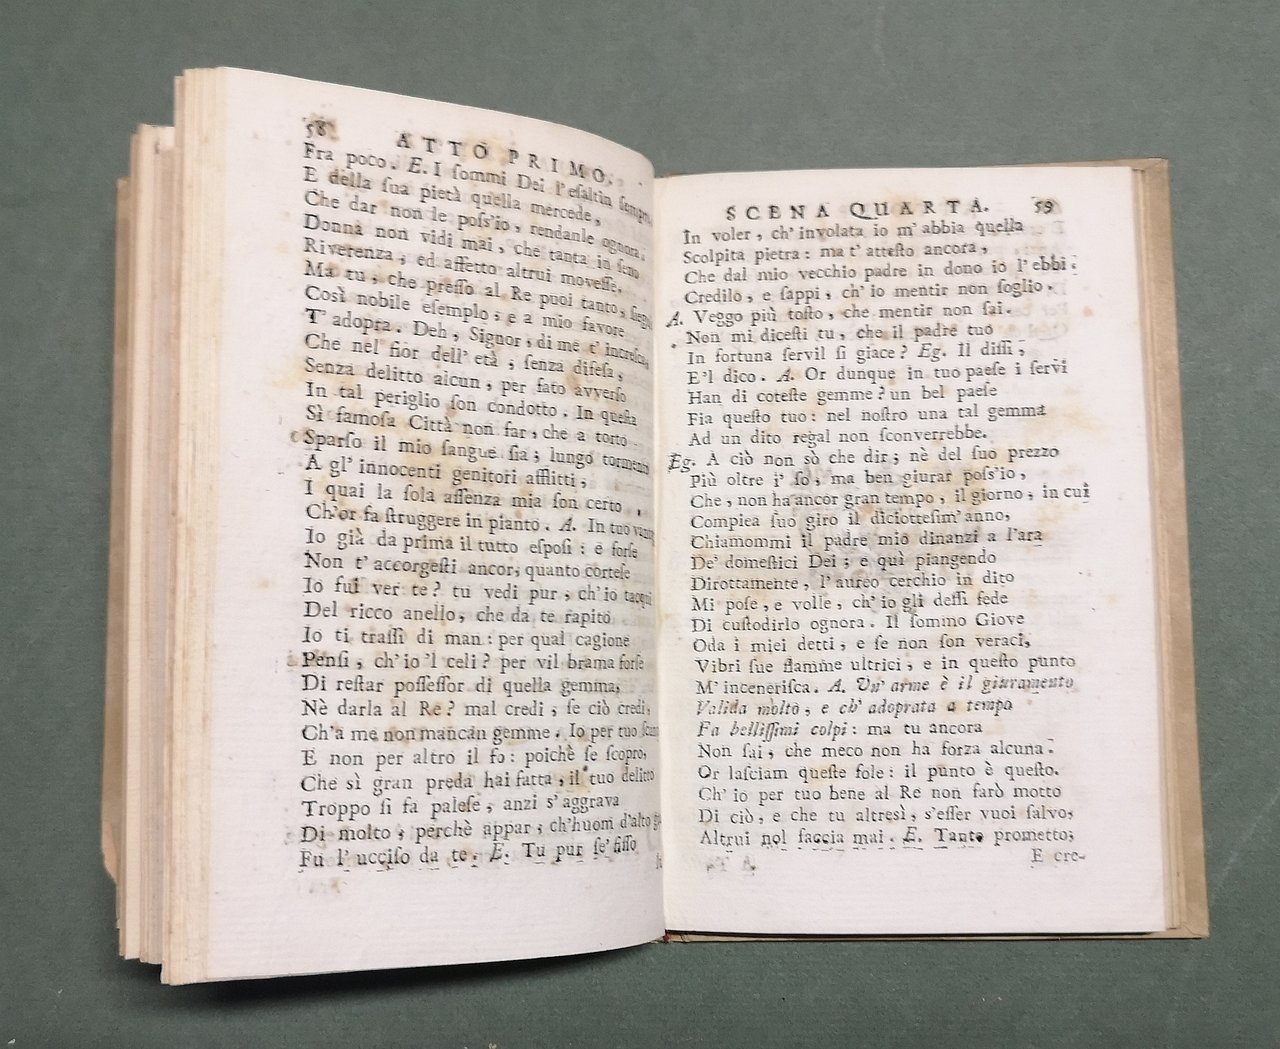 58
ATTO PRIMO.
Fra poco. E. I ſommi Dei l'eſaltin ſempre,
E della ſua pietà quella mercede,
Che dar non le poſs'io, rendanle ognora.
Donna non vidi mai, che tanta in ſeno
Riverenza, ed affetto altrui moveſſe.
Ma tu, che preſſo al Re puoi tanto,
Così nobile eſemplo; e a mio favore
T' adopra. Deh, Signor, di me t' increſca,
Che nel fior dell' età, ſenza difeſa,
Senza delitto alcun, per fato avverſo
In tal periglio ſon condotto. In queſta
Sì famoſa Città non far, che a torto
Sparſo il mio ſangue ſia; lungo tormento
A gl' innocenti genitori afflitti,
I quai la ſola aſſenza mia ſon certo,
Ch'or fa ſtruggere in pianto. A. In tuo
Io già da prima il tutto eſpoſi: e forſe
Non t' accorgeſti ancor, quanto corteſe
Io fui ver te? tu vedi pur, ch' io tacqui
Del ricco anello, che da te rapito
Io ti traſſi di man: per qual cagione
Penſi, ch' io 'l celi? per vil brama forſe
Di reſtar poſſeſſor di quella gemma,
Nè darla al Re? mal credi, ſe ciò credi,
Ch'a me non mancan gemme. Io per tuo
E non per altro il fo: poichè ſe ſcopro,
Che sì gran preda hai fatta, il tuo delitto
Troppo ſi fa paleſe, anzi s' aggrava
Di molto; perchè appar, ch'huom d'alto
Fu l' ucciſo da te. E. Tu pur ſe' fiſſo
SCENA QUARTA. 59
In voler, ch' involata io m' abbia quella
Scolpita pietra: ma t' atteſto ancora,
Che dal mio vecchio padre in dono io l' ebbi.
Credilo, e ſappi, ch' io mentir non ſoglio.
A. Veggo più toſto, che mentir non ſai.
Non mi diceſti tu, che il padre tuo
In fortuna ſervil ſi giace? Eg. Il diſſi,
E'l dico. A. Or dunque in tuo paeſe i ſervi
Han di coteſte gemme? un bel paeſe
Fia queſto tuo: nel noſtro una tal gemma
Ad un dito regal non ſconverrebbe.
Eg. A ciò non sò che dir; nè del ſuo prezzo
Più oltre i' ſo; ma ben giurar poſs'io,
Che, non ha ancor gran tempo, il giorno, in cui
Compiea ſuo giro il diciotteſim' anno,
Chiamommi il padre mio dinanzi a l'ara
De' domeſtici Dei; e quì piangendo
Dirottamente, l' aureo cerchio in dito
Mi poſe, e volle, ch' io gli deſſi fede
Di cuſtodirlo ognora. Il ſommo Giove
Oda i miei detti, e ſe non ſon veraci,
Vibri ſue fiamme ultrici, e in queſto punto
M' inceneriſca. A. Un' arme è il giuramento
Valida molto, e ch' adoprata a tempo
Fa belliſſimi colpi: ma tu ancora
Non ſai, che meco non ha forza alcuna.
Or laſciam queſte fole: il punto è queſto.
Ch' io per tuo bene al Re non farò motto
Di ciò, e che tu altresì, s'eſſer vuoi ſalvo,
Altrui nol faccia mai. E. Tanto prometto;
E cre-